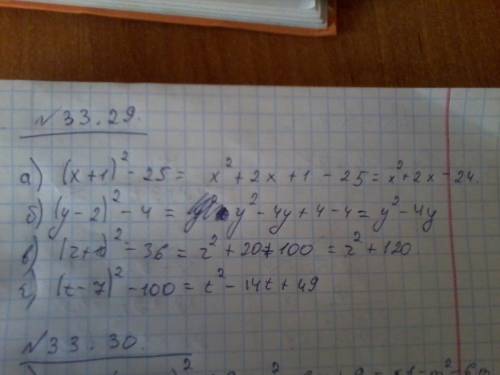 №33.29.
а) (x+1)² - 25 = x² + 2x + 1 - 25 = x² + 2x - 24.
б) (y-2)² - 4 = y² - 4y + 4 - 4 = y² - 4y
в) - 36 = z² + 20 100 = z² + 120
г) (t-7)² - 100 = t² - 14t + 49
№33.30.